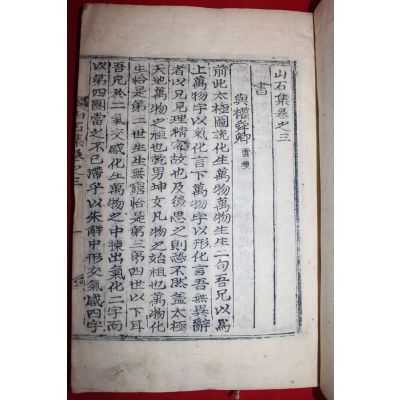 山石集卷之三
書
與權舜卿 雲煥
前此太極圖說化生萬物萬物生生二句吾兄以爲
上萬物字以氣化言下萬物字以形化言吾無異辭
者以兄見理精密故也及後思之則恐不然蓋太極
天地萬物之祖也乾男坤女凡物之始祖也萬物化
生恰是第二世生生無窮恰是第三第四世以下耳
吾兄於二氣交感化生萬物之中揀出氣化二字而
以第四圈當之不已滯乎以朱解中形交氣感四字
山石集卷之三